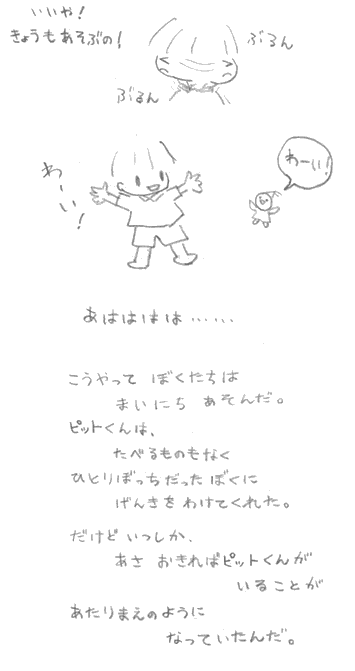 いいや！
きょうもあそぶの！
ぶるん
ぶるん
わーい！
わーい！
あはははは……
こうやって ぼくたちは
まいにち あそんだ。
ピットくんは、
たべるものもなく
ひとりぼっちだった ぼくに
げんきを わけてくれた。
だけど いっしか、
あさ おきればピットくんが
いることが
あたりまえのように
なっていたんだ。